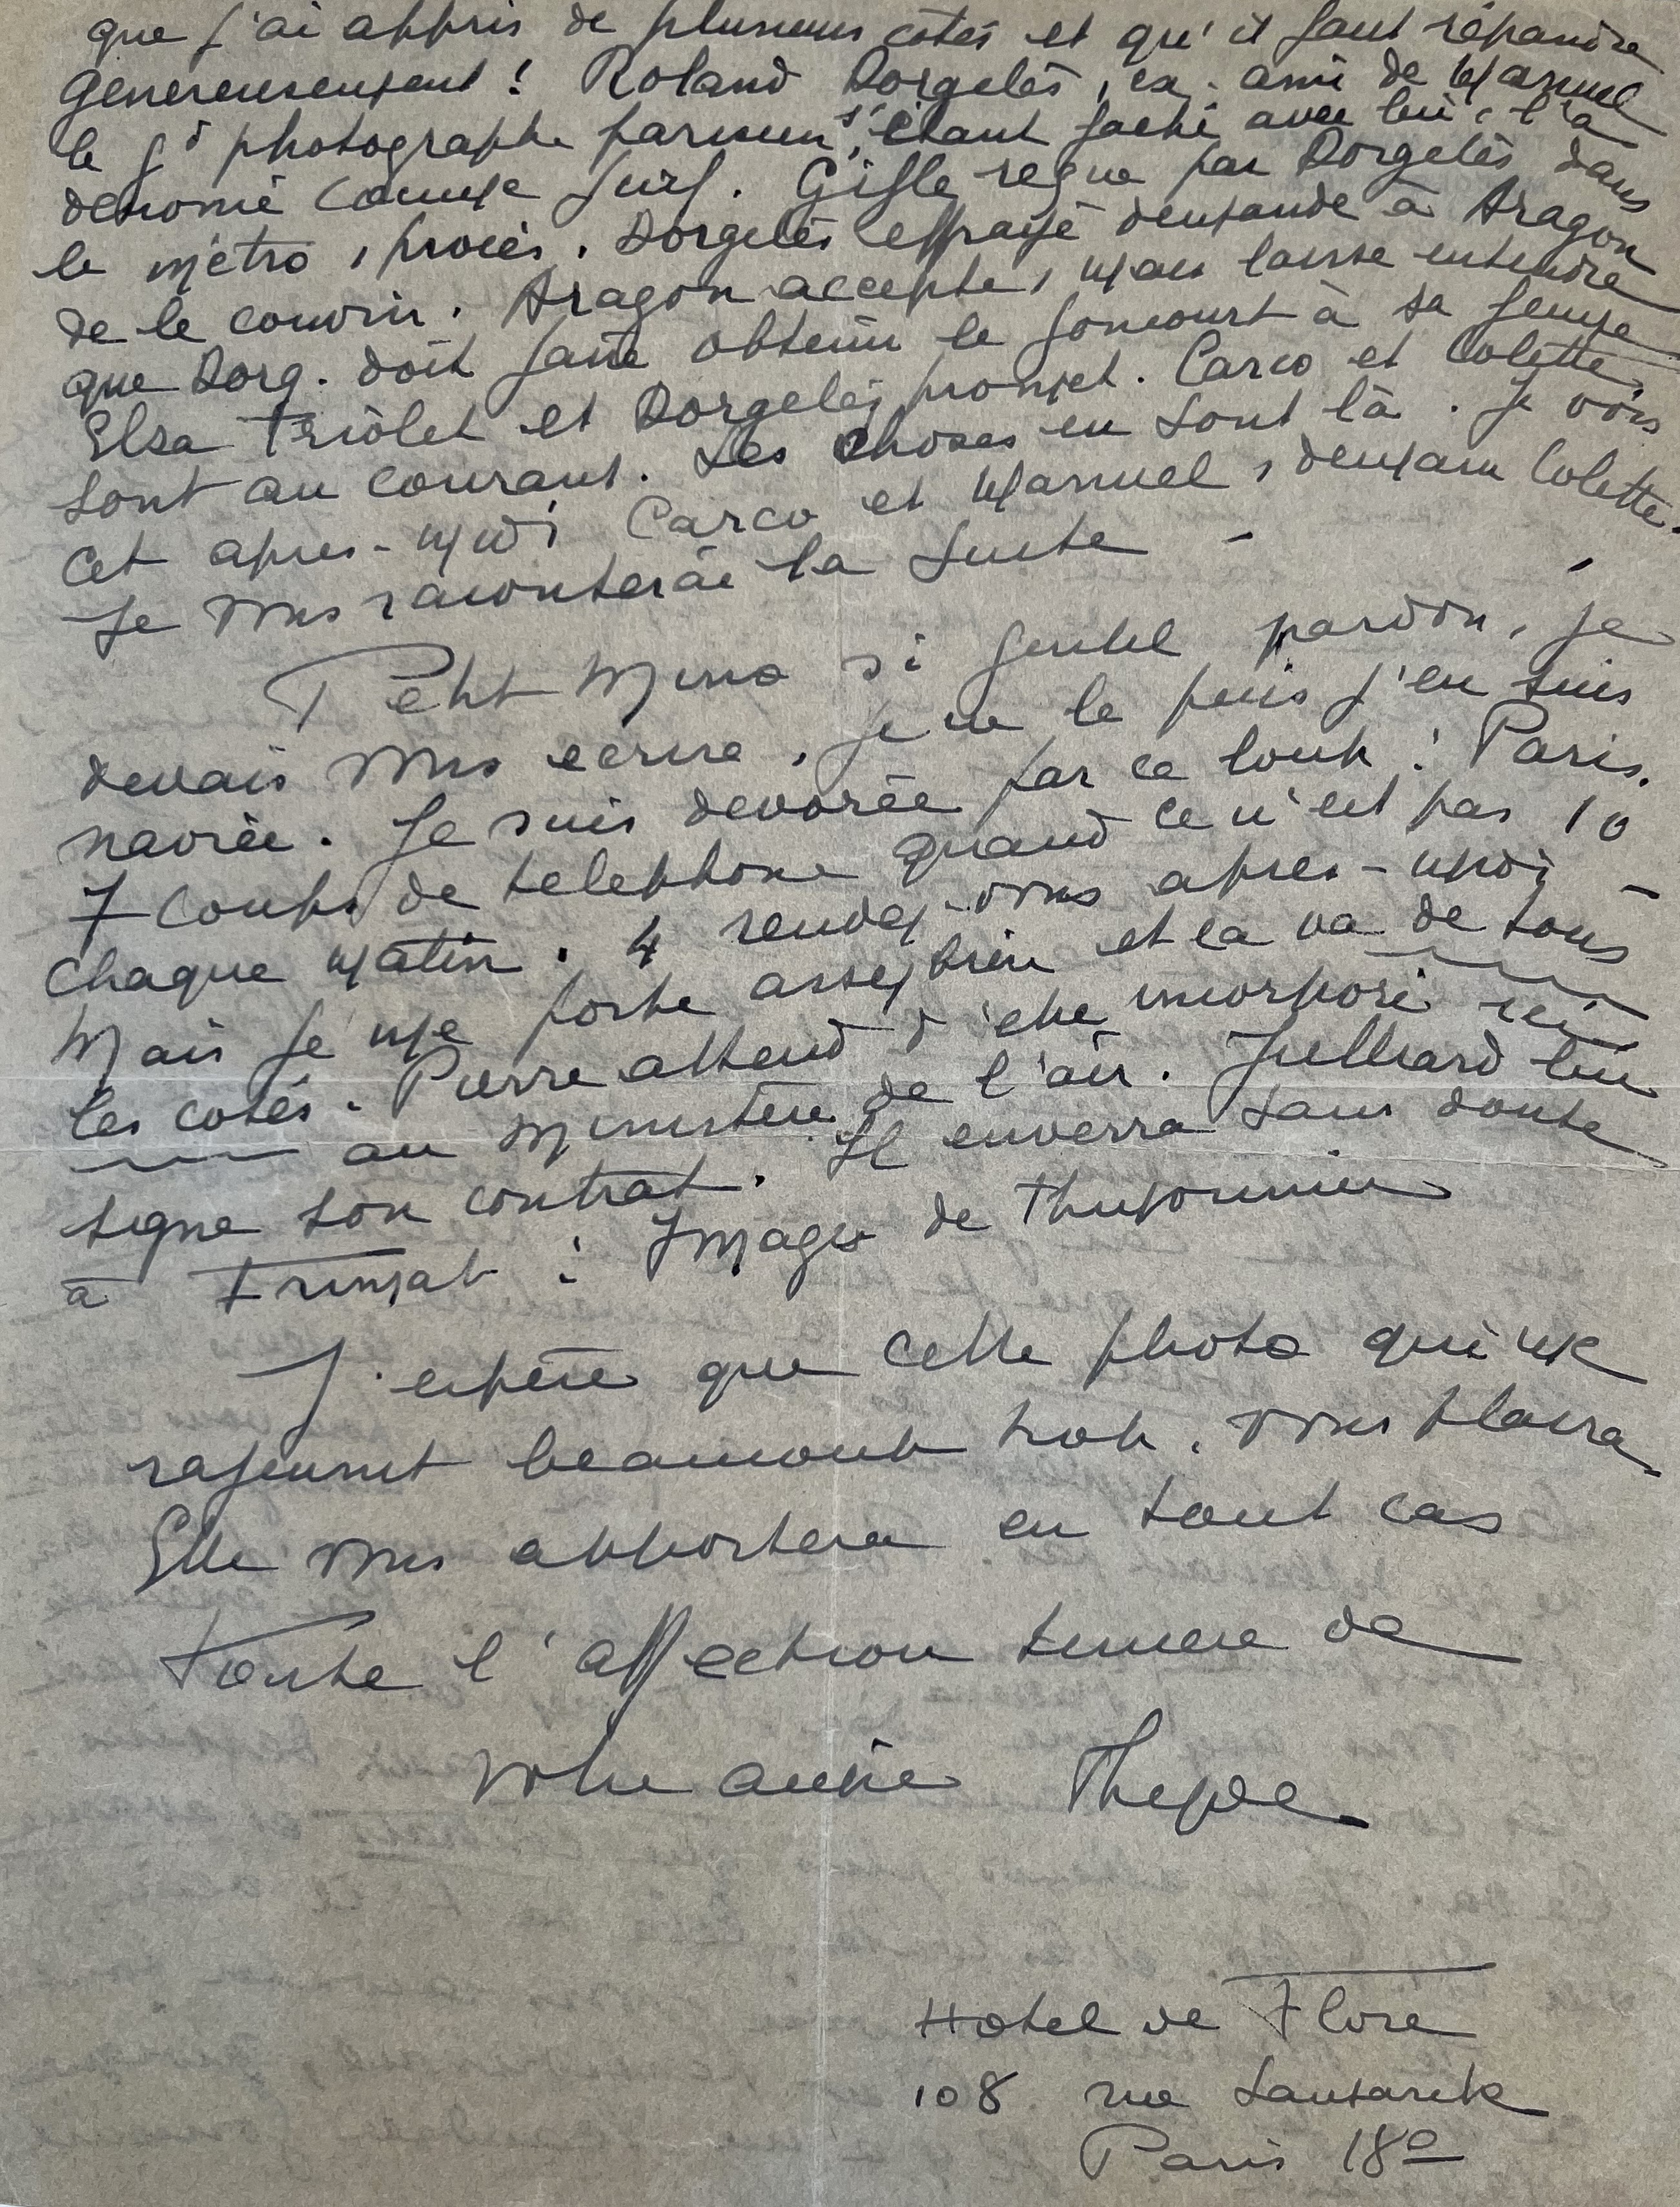 que j'ai appris de plusieurs côtés et qu'il faut répandre
genereusement ! Roland Dorgelès, ex-ami de Manuel
le gd photographe parisien, s'étant faché avec lui, l'a
denomé comme juif. Gifle reçue par Dorgelès dans
le métro, procès. Dorgelès effrayé demande à Aragon
de le couvrir. Aragon accepte, mais laisse entendre
que Dorg. doit faire obtenir le Goncourt à sa femme
Elsa Triolet et Dorgelès promet. Carco et Colette
sont au courant. Les choses en sont là. Je vois
cet apres-midi Carco et Manuel, demain Colette.
Je vous raconterai la suite -
Petit Mino si gentil pardon, je
devais vous ecrire, je ne le puis j'en suis
navrée. Je suis devorée par ce loup : Paris.
7 coups de telephone quand ce n'est pas 10
chaque matin. 4 rendez-vous apres-midi -
Mais je me porte assez bien et ca va de tous
les cotés. Pierre attend d'etre incorporé ici
au Ministère de l'air. Julliard lui
signe son contrat. Il enverra sans doute
à : Images de
J'espère que cette photo qui me
rajeunit beaucoup trop, vous plaira
Elle vous apportera en tout cas
toute l'affection sincere de
votre amie
Hotel de Flore
108 rue Lamarck
Paris 18e